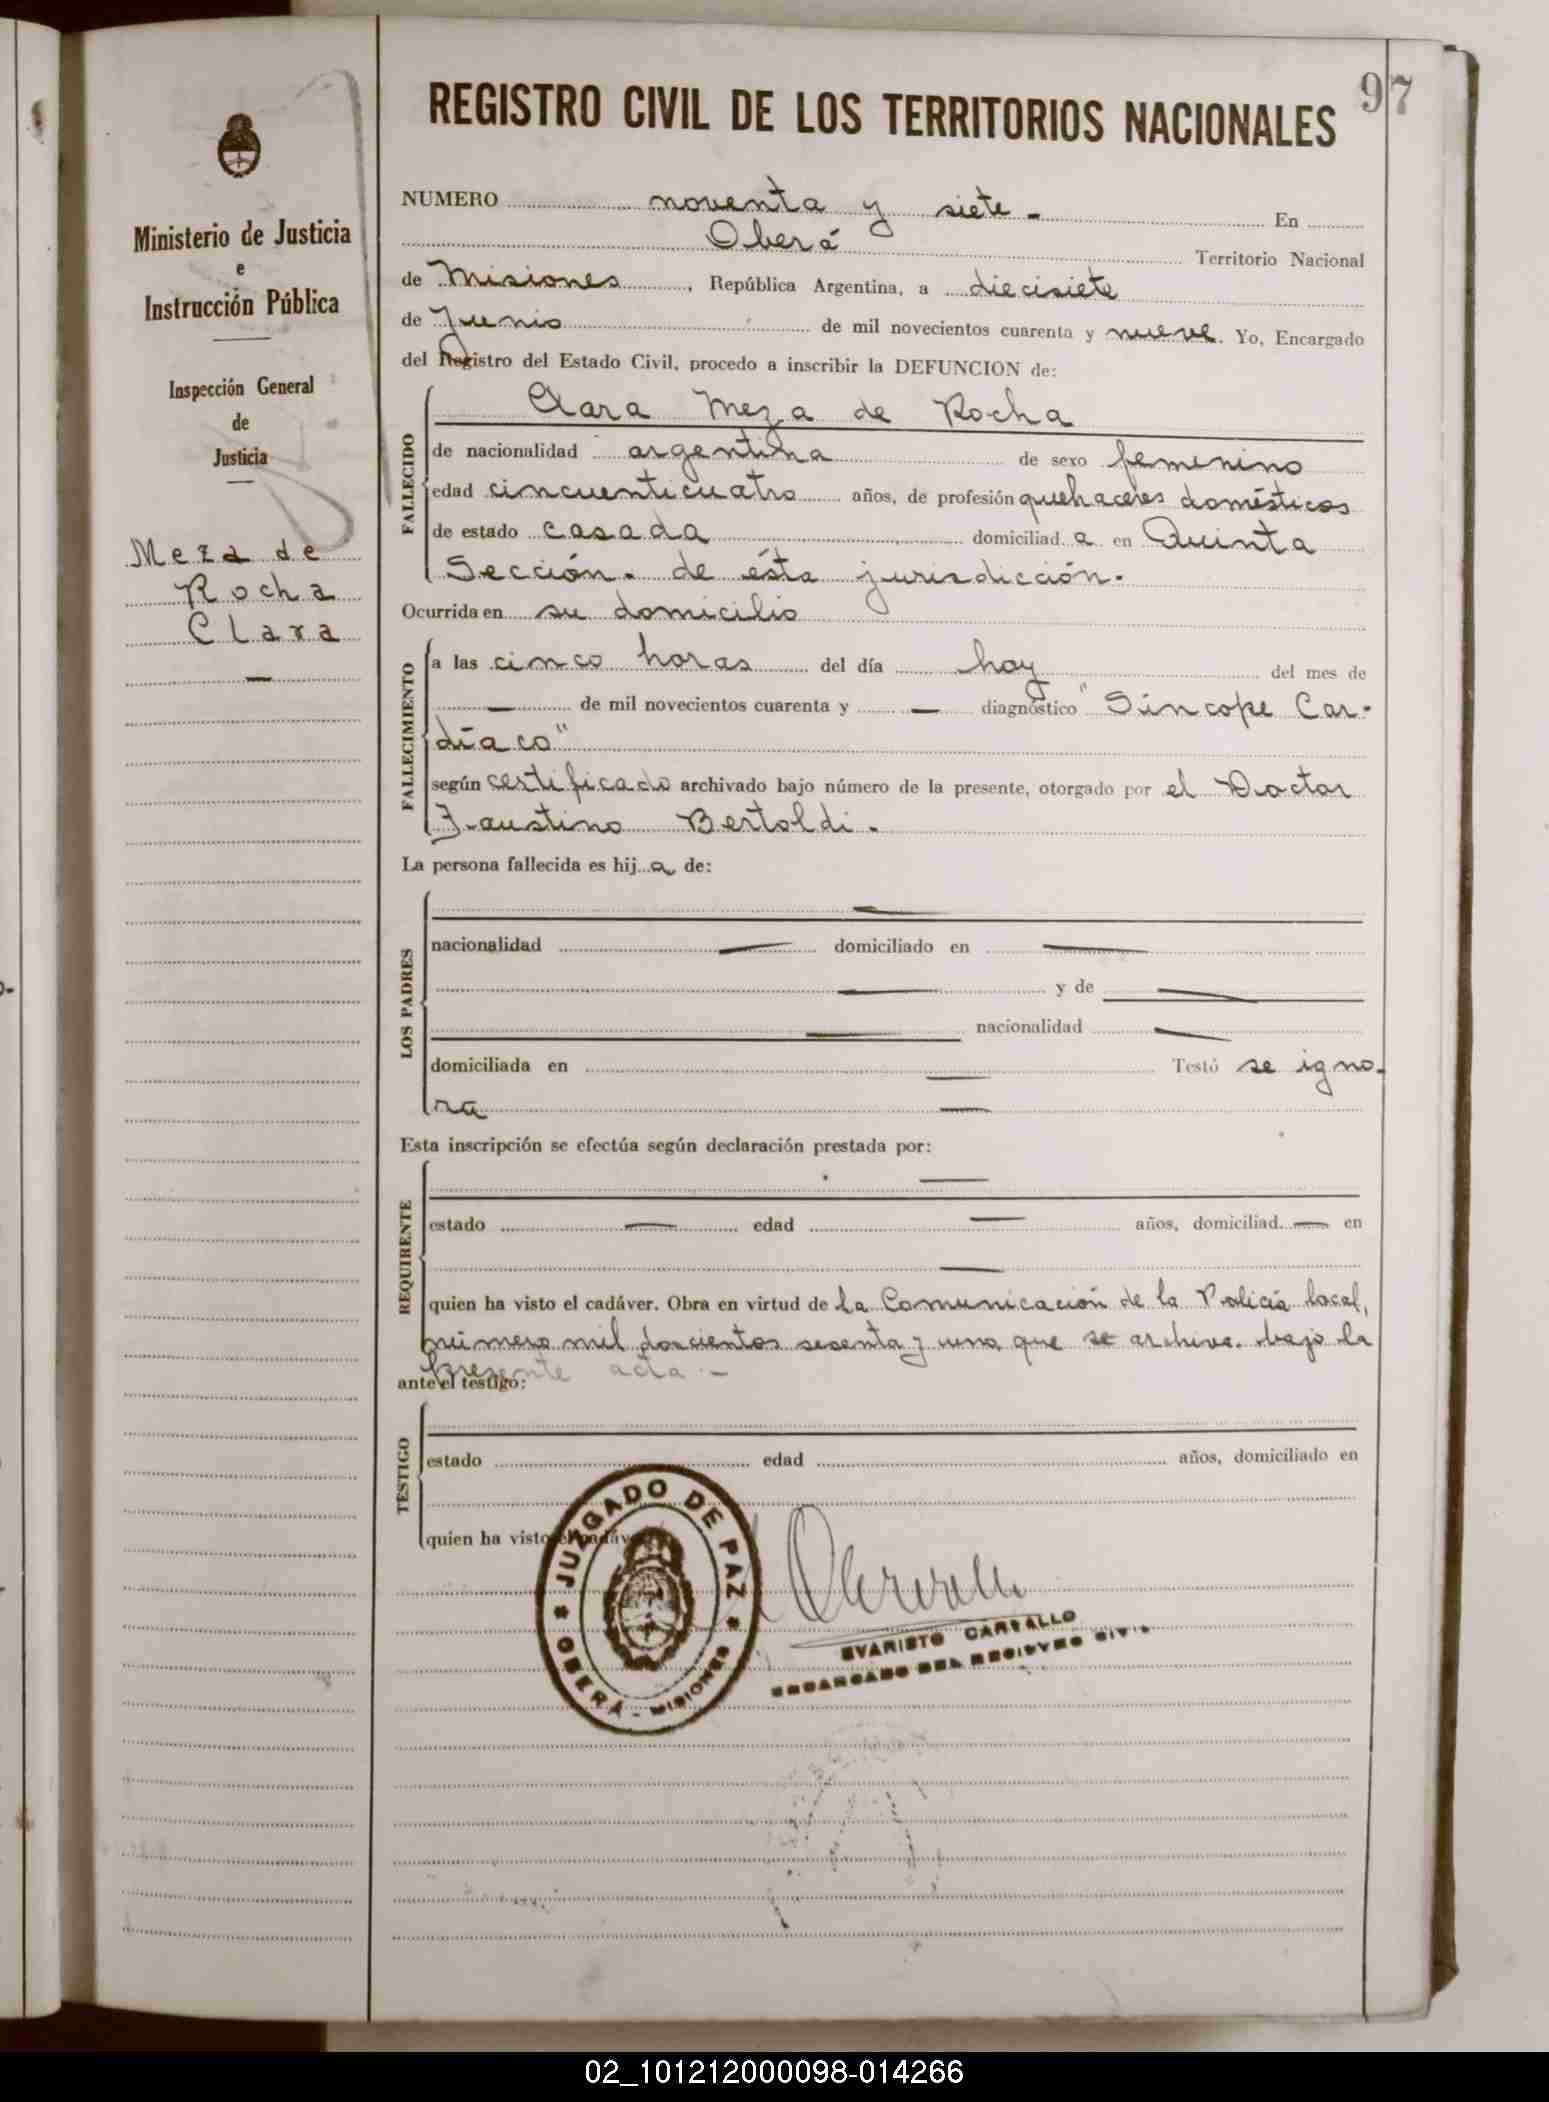 97
REGISTRO CIVIL DE LOS TERRITORIOS NACIONALES
Ministerio de Justicia
e
Instrucción Pública
Inspección General
de
Justicia
Meza de
Rocha
Clara
—
NUMERO noventa y siete - En
Oberá Territorio Nacional
de Misiones, República Argentina, a diecisiete
de Junio de mil novecientos cuarenta y nueve. Yo, Encargado
del Registro del Estado Civil, procedo a inscribir la DEFUNCION de:
FALLECIDO
Clara Meza de Rocha
de nacionalidad argentina de sexo femenino
edad cincuenticuatro años, de profesión quehaceres domésticos
de estado casada domiciliad a en Quinta
Sección. de ésta jurisdicción.
Ocurrida en su domicilio
FALLECIMIENTO
a las cinco horas del día hoy del mes de
— de mil novecientos cuarenta y — diagnóstico "Síncope Car-
díaco"
según certificado archivado bajo número de la presente, otorgado por el Doctor
Faustino Bertoldi.
La persona fallecida es hij a de:
LOS PADRES
—
nacionalidad — domiciliado en —
— y de —
— nacionalidad —
domiciliada en — Testó se igno-
ra —
Esta inscripción se efectúa según declaración prestada por:
REQUIRENTE
—
estado — edad — años, domiciliad — en
—
quien ha visto el cadáver. Obra en virtud de la Comunicación de la Policía local,
número mil doscientos sesenta y uno, que se archiva bajo la
presente acta.-
ante el testigo:
TESTIGO
estado edad años, domiciliado en
quien ha visto el cadáver
JUZGADO DE PAZ
OBERÁ - MISIONES
EVARISTO CARVALLO
ENCARGADO DEL REGISTRO CIVIL
02_101212000098-014266